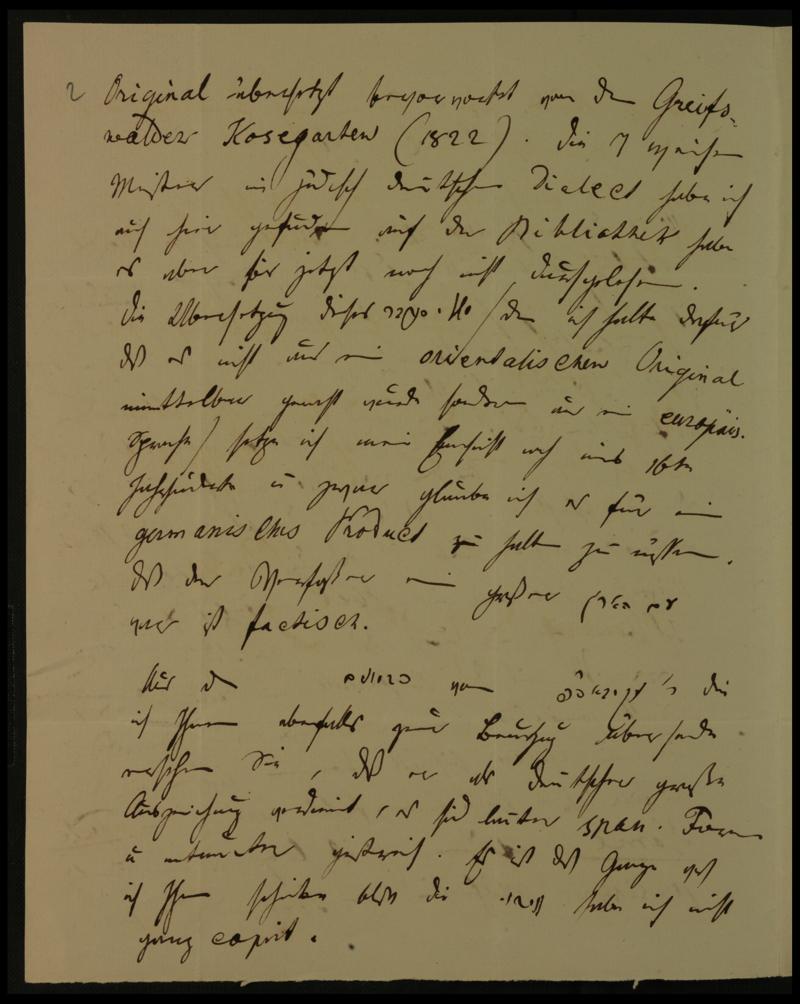 2 Original übersetzt bevorwortet von dem Greifs-
walder Kosegarten (1822). Die 7 weisen
Meister in jüdisch deutschen Dialect habe ich
auch hier gefunden auf der Bibliothek habe
es aber bis jetzt noch nicht durchgelesen.
Die Übersetzung dieses (den ich halte dafür
daß es nicht aus ein orientalischen Original
unmittelbar gemacht wurde sondern aus ein europäis.
Sprache) setze ich mein nach ins 16te
Jahrhundert u zwar glaube ich es für ein
germanisches Product zu halten zu müssen.
daß der Verfasser ein großer עם הארץ
war ist factisch.
Aus dem von die
ich Ihnen ebenfalls zur übersende
ersehen Sie, daß er als Deutscher große
Auszeichnung verdient, es sind lauter span. Formen
u mitunter geistreich. Es ist das Ganze was
ich Ihnen schicke bloß die habe ich nicht
ganz copirt.